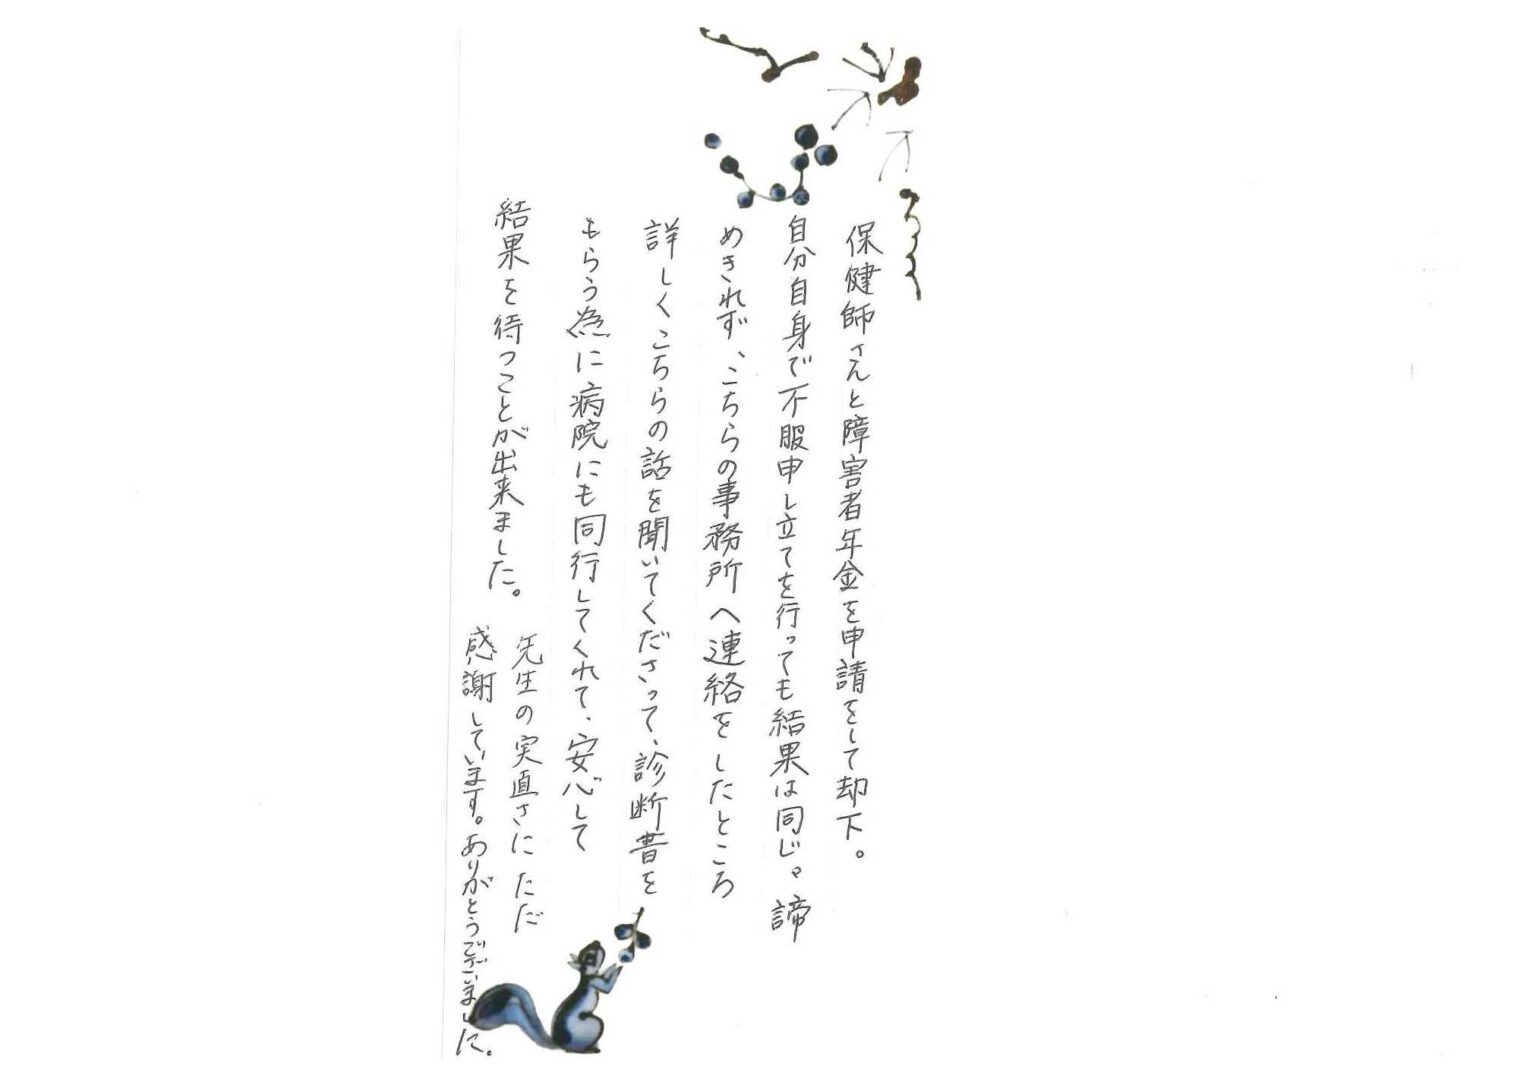 保健師さんと障害者年金を申請をして却下。
自分自身で不服申し立てを行っても結果は同じ。諦
めきれず、こちらの事務所へ連絡をしたところ
詳しくこちらの話を聞いてくださって、診断書を
もらう為に病院にも同行してくれて、安心して
結果を待つことが出来ました。
先生の実直さにただ
感謝しています。ありがとうございました。